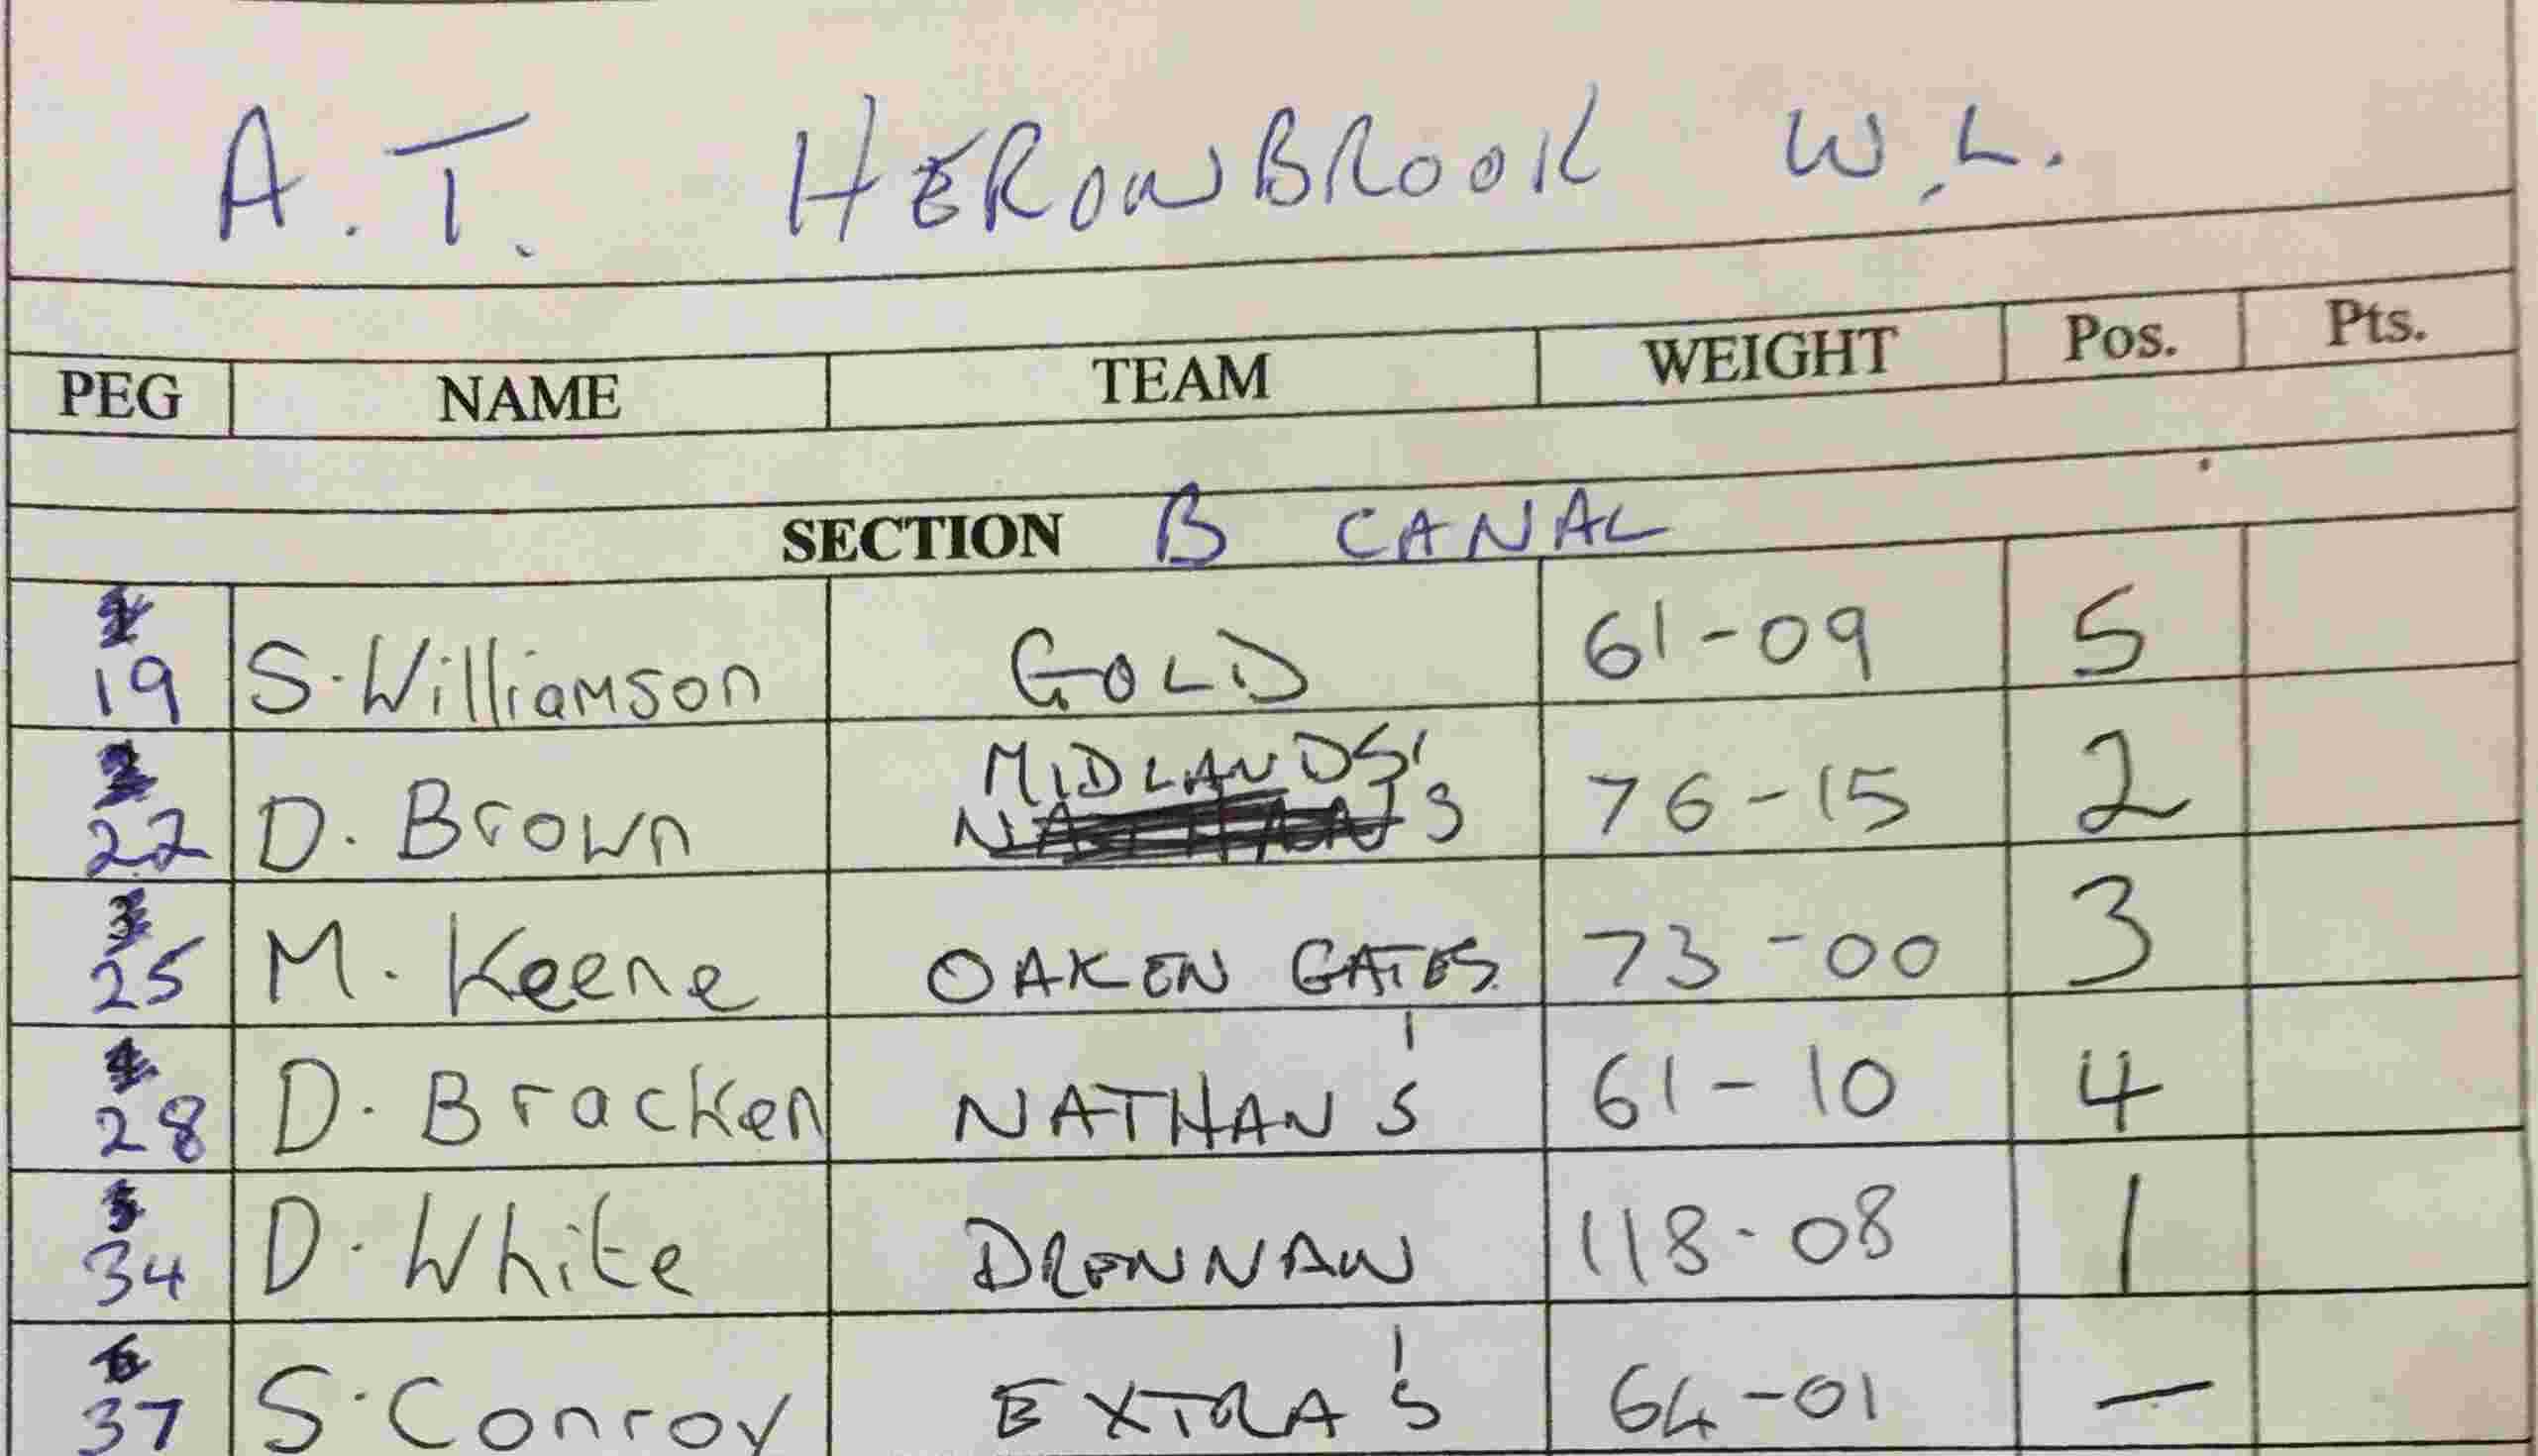 A.T. HERONBROOK W.L.
PEG NAME TEAM WEIGHT Pos. Pts.
SECTION B CANAL
19 S. Williamson GOLD 61-09 5
MIDLANDS'
22 D. Brown 76-15 2
25 M. Keene OAKEN GATES 73-00 3
28 D. Bracken NATHAN'S 61-10 4
34 D. White DRENNAN 118-08 1
37 S. Conroy EXTRA'S 64-01 —